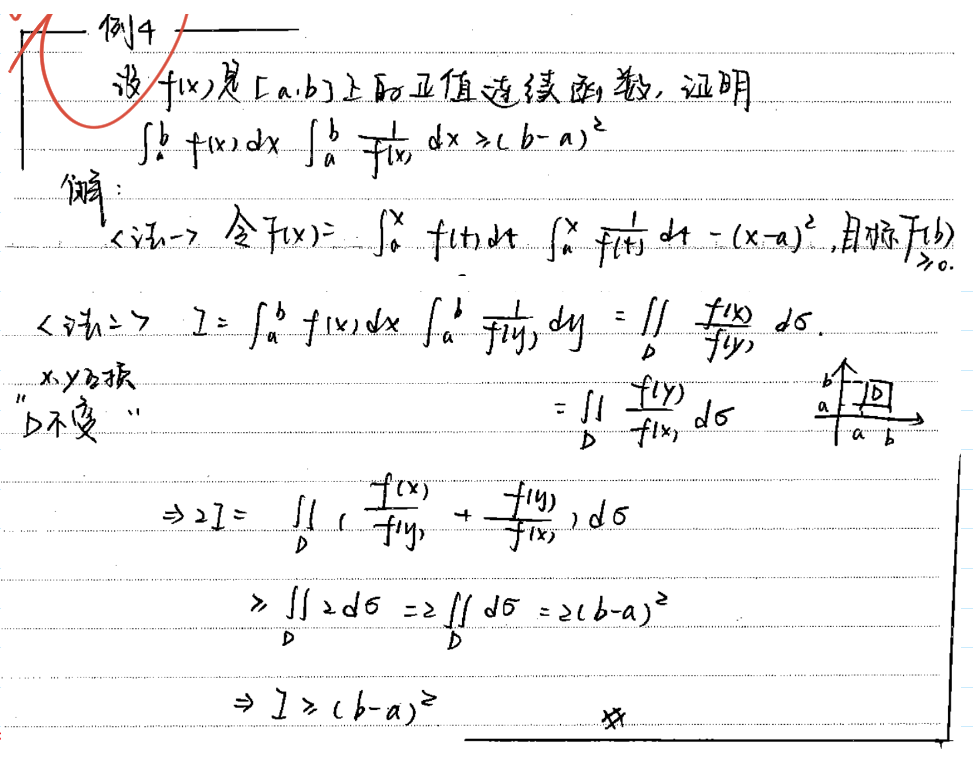 例4
设 f(x)是[a,b]上的正值连续函数, 证明
∫ₐᵇ f(x)dx ∫ₐᵇ 1/f(x) dx ≥ (b-a)²
解:
<法一> 令 F(x)= ∫ₐˣ f(t)dt ∫ₐˣ 1/f(t) dt - (x-a)², 目标 F(b) ≥0.
<法二> I = ∫ₐᵇ f(x)dx ∫ₐᵇ 1/f(y) dy = ∬_D f(x)/f(y) dσ.
x,y互换
"D不变"
= ∬_D f(y)/f(x) dσ
b
a
D
a b
⇒ 2I = ∬_D ( f(x)/f(y) + f(y)/f(x) ) dσ
≥ ∬_D 2dσ = 2∬_D dσ = 2(b-a)²
⇒ I ≥ (b-a)²